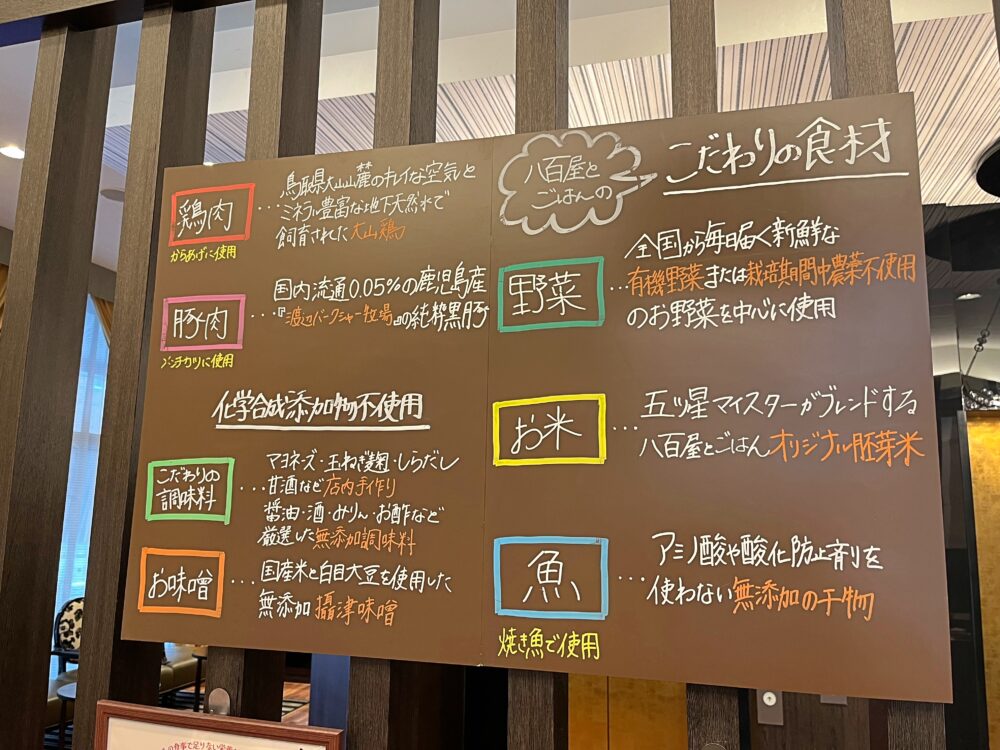 八百屋と
ごはんの
こだわりの食材
野菜
…全国から毎日届く新鮮な
有機野菜または栽培期間中農薬不使用
のお野菜を中心に使用
お米
…五ツ星マイスターがブレンドする
八百屋とごはんオリジナル胚芽米
魚
…アミノ酸や酸化防止剤を
使わない無添加の干物
焼き魚で使用
鶏肉
…鳥取県大山山麓のキレイな空気と
ミネラル豊富な地下天然水で
飼育された大山鶏
からあげに使用
豚肉
国内流通0.05%の鹿児島産
…『渡辺バークシャー牧場』の純粋黒豚
メンチカツに使用
化学合成添加物不使用
こだわりの
調味料
マヨネーズ・玉ねぎ麹・しらだし
…甘酒など店内手作り
醤油・酒・みりん・お酢など
厳選した無添加調味料
お味噌
…国産米と白目大豆を使用した
無添加 攝津味噌
の食事で足りない栄養